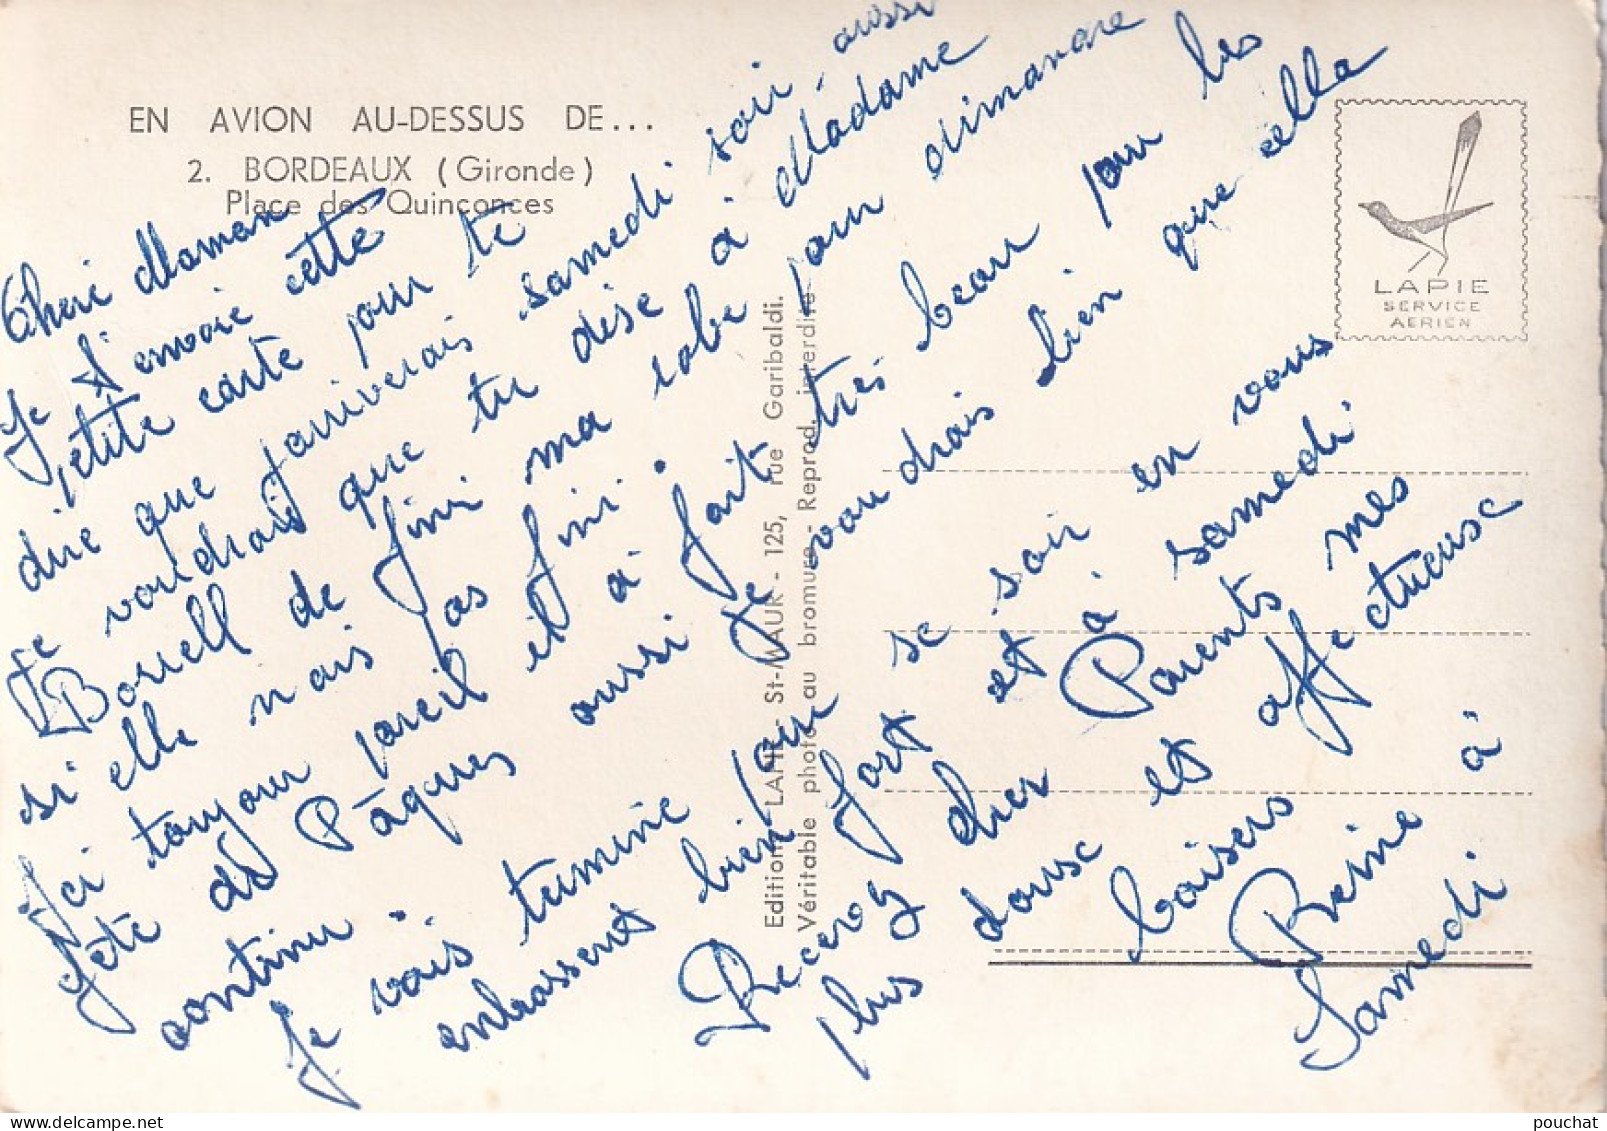 EN AVION AU-DESSUS DE...
2. BORDEAUX (Gironde)
Place des Quinconces
LAPIE
SERVICE
AERIEN
Editions LAPIE - St-MAUR - 125, rue Garibaldi.
Véritable photo au bromure - Reprod. interdite
Cheri Maman
Je t'envoie cette
petite carte pour te
dire que j'arriverais samedi soir, aussi
Je voudrais que tu dise à Madame
Borrell de fini ma robe pour dimanche
si elle n'ais pas fini.
Ici toujour pareil et à fait très beau pour les
fête de Pâques aussi Je voudrais bien que cella
continu.
Je vais terminé pour se soir en vous
embrassent bien fort et à samedi
Recevez cher Parents mes
plus douse et affectueuse
baisers
Reine à
Samedi
pouchat